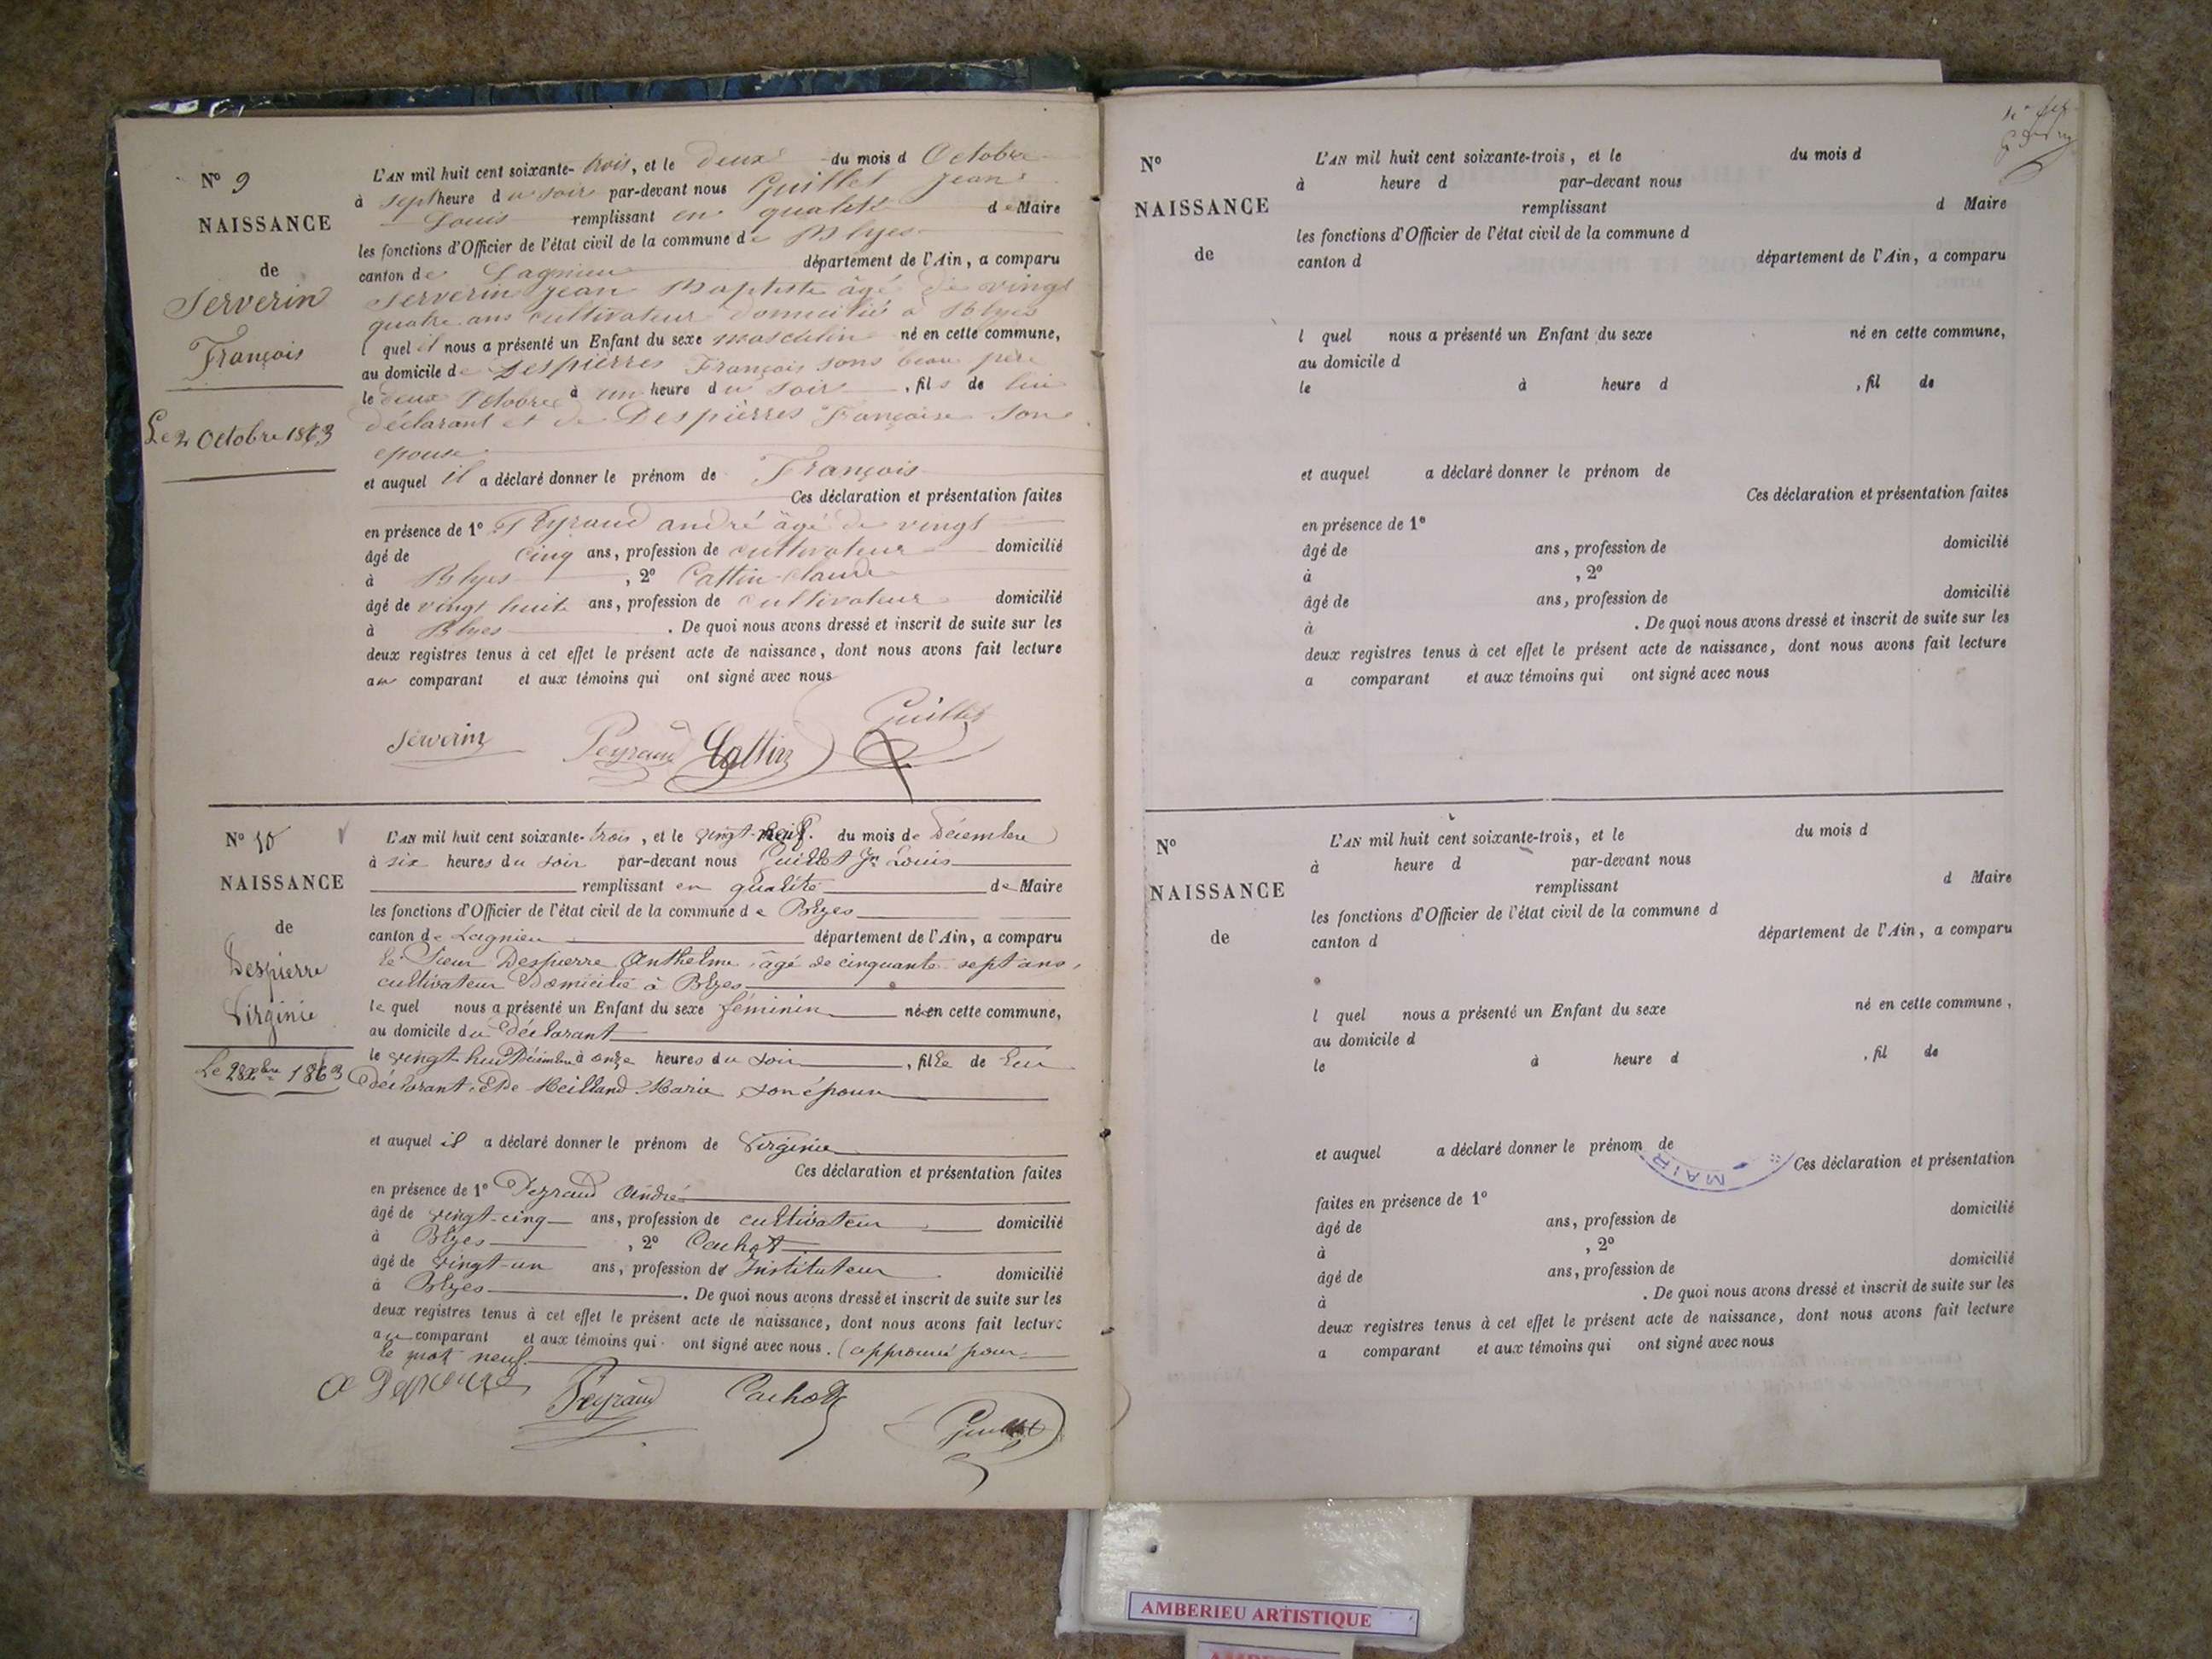 N° 9
NAISSANCE
de
Serverin
François
Le 2 Octobre 1863
L'AN mil huit cent soixante-trois, et le deux du mois d Octobre
à sept heure du soir par-devant nous Guillet Jean
Louis remplissant en qualité de Maire
les fonctions d'Officier de l'état civil de la commune de Blyes
canton de Lagnieu département de l'Ain, a comparu
Serverin jean Baptiste âgé de vingt
quatre ans cultivateur domicilié à Blyes
l quel il nous a présenté un Enfant du sexe masculin né en cette commune,
au domicile de Despierres François sons beau père
le deux Octobre à un heure du soir, fils de lui
déclarant et de Despierres Françoise son
epouse
et auquel il a déclaré donner le prénom de François
Ces déclaration et présentation faites
en présence de 1° Peyraud andré âgé de vingt
âgé de cinq ans, profession de cultivateur domicilié
à Blyes, 2° Cattin Claude
âgé de vingt huit ans, profession de cultivateur domicilié
à Blyes. De quoi nous avons dressé et inscrit de suite sur les
deux registres tenus à cet effet le présent acte de naissance, dont nous avons fait lecture
au comparant et aux témoins qui ont signé avec nous
Serverin Peyraud Cattin Guillet
N° 10
NAISSANCE
de
Despierre
Virginie
Le 28 Xbre 1863
L'AN mil huit cent soixante-trois, et le vingt-neuf. du mois de Décembre
à six heures du soir par-devant nous Guillet Jn Louis
remplissant en qualité de Maire
les fonctions d'Officier de l'état civil de la commune de Blyes
canton de Lagnieu département de l'Ain, a comparu
le Sieur Despierre Anthelme, âgé de cinquante-sept ans,
cultivateur domicilié à Blyes
le quel nous a présenté un Enfant du sexe féminin née en cette commune,
au domicile du Déclarant
le vingt huit Décembre à onze heures du soir, fille de lui
Déclarant, et de Meilland Marie son épouse
et auquel il a déclaré donner le prénom de Virginie
Ces déclaration et présentation faites
en présence de 1° Peyraud André
âgé de vingt-cinq ans, profession de cultivateur domicilié
à Blyes, 2° Cachot
âgé de vingt-un ans, profession de Instituteur domicilié
à Blyes. De quoi nous avons dressé et inscrit de suite sur les
deux registres tenus à cet effet le présent acte de naissance, dont nous avons fait lecture
au comparant et aux témoins qui ont signé avec nous. (approuvé pour
le mot neuf.
Peyraud Cachot Guillet
N°
NAISSANCE
de
L'AN mil huit cent soixante-trois, et le du mois d
à heure d par-devant nous
remplissant d Maire
les fonctions d'Officier de l'état civil de la commune d
canton d département de l'Ain, a comparu
l quel nous a présenté un Enfant du sexe né en cette commune,
au domicile d
le à heure d , fil de
et auquel a déclaré donner le prénom de
Ces déclaration et présentation faites
en présence de 1°
âgé de ans, profession de domicilié
à , 2°
âgé de ans, profession de domicilié
à . De quoi nous avons dressé et inscrit de suite sur les
deux registres tenus à cet effet le présent acte de naissance, dont nous avons fait lecture
a comparant et aux témoins qui ont signé avec nous
N°
NAISSANCE
de
L'AN mil huit cent soixante-trois, et le du mois d
à heure d par-devant nous
remplissant d Maire
les fonctions d'Officier de l'état civil de la commune d
canton d département de l'Ain, a comparu
l quel nous a présenté un Enfant du sexe né en cette commune,
au domicile d
le à heure d , fil de
et auquel a déclaré donner le prénom de
MAIR
Ces déclaration et présentation
faites en présence de 1°
âgé de ans, profession de domicilié
à , 2°
âgé de ans, profession de domicilié
à . De quoi nous avons dressé et inscrit de suite sur les
deux registres tenus à cet effet le présent acte de naissance, dont nous avons fait lecture
a comparant et aux témoins qui ont signé avec nous
AMBERIEU ARTISTIQUE